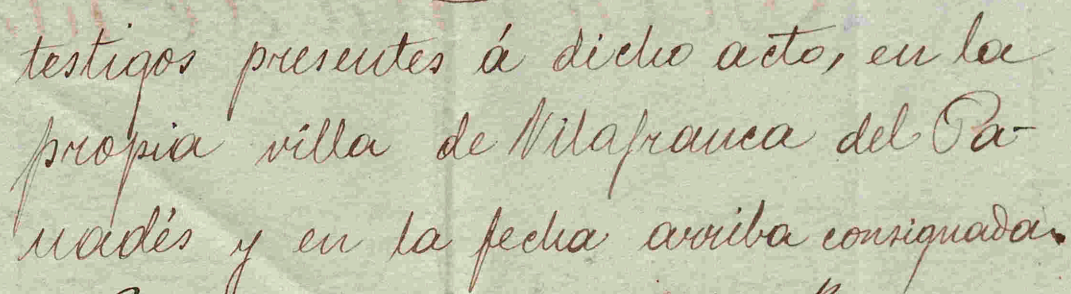 testigos presentes á dicho acto, en la
propia villa de Vilafranca del Pa-
nadés y en la fecha arriba consignada.